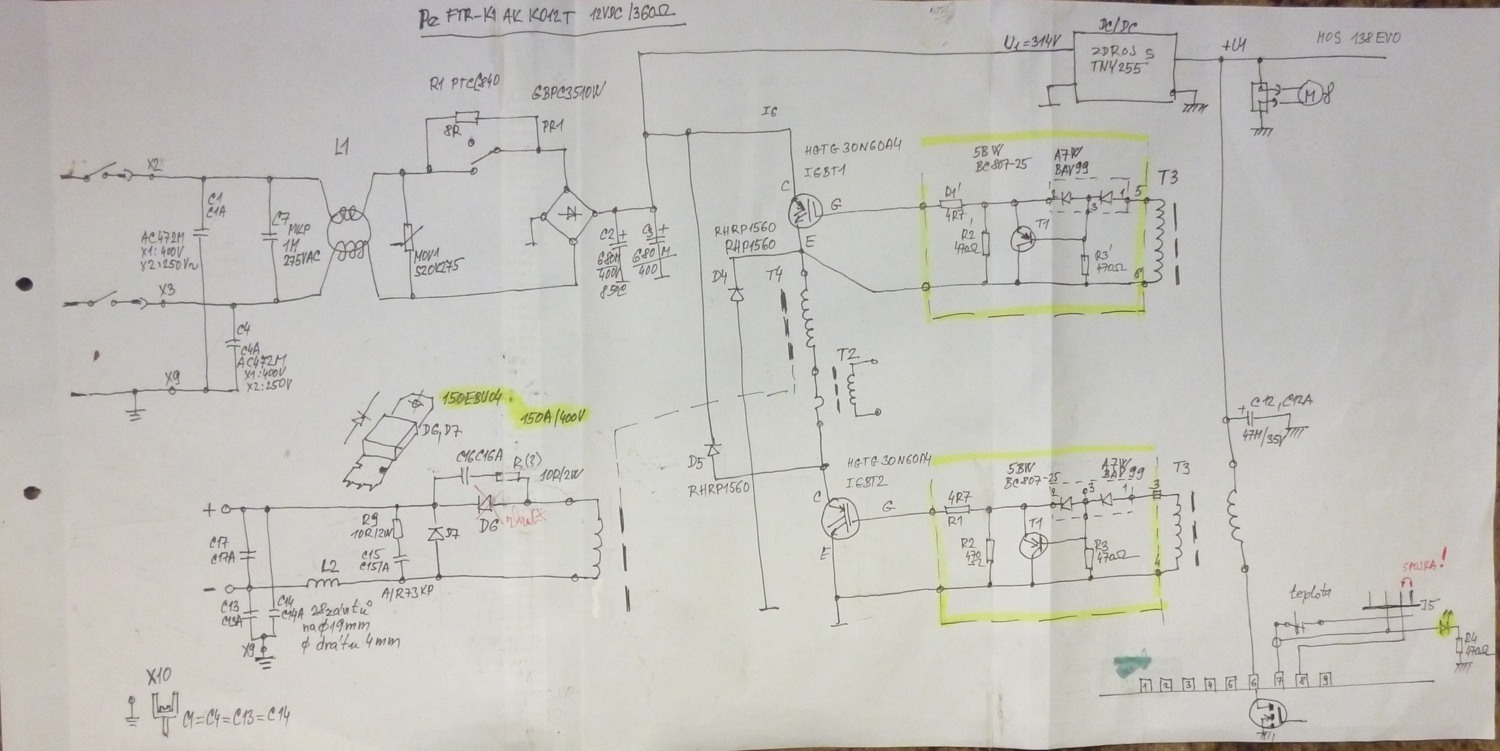 Re FTR-K1 AK K012T 12VDC/360Ω
MOS 138 EVO
U1=314V
DC/DC
ZDROJ S
TNY255
+U1
M
R1 PTC C840
8R
GBPC3510W
PR1
L1
X2
C1
C1A
AC472M
X1:400V
X2:250V~
C7
MKP
1M
275VAC
MOV1
S20K275
C2 +
680M
400V
85°C
C3 +
680M
400
X3
C4
C4A
AC472M
X1:400V
X2:250V
X9
I6
HGTG30N60A4
IGBT1
C
G
E
RHRP1560
RHP1560
D4
T4
T2
D5
RHRP1560
5BW
BC807-25
A7W
BAV99
R1'
4R7
R2'
470Ω
T1
R3'
470Ω
2
3
1
5
6
T3
150EBU04
150A/400V
D6,D7
C16 C16A
R(?)
10R/2W
D6
D7
R9
10R/2W
C15
C15/A
A/R73KP
+
-
C17
C17A
L2
C13
C13A
C14
C14A
28 závitů
na ϕ19mm
ϕ drátu 4mm
X9
X10
C1=C4=C13=C14
HGTG30N60A4
IGBT2
C
G
E
5BW
BC807-25
A7W
BAV99
4R7
R1
R2
47Ω
T1
R3
470Ω
2
3
1
3
4
T3
+
C12, C12A
47M/35V
SPOJKA!
teplota
I5
R4
470Ω
1 2 3 4 5 6 7 8 9